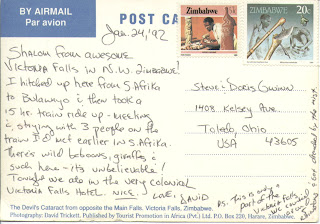 BY AIRMAIL
Par avion
POST CA
Jan. 24, '92
Zimbabwe
ZIMBABWE
20c
Shalom from awesome
Victoria Falls in N.W. Zimbabwe!
I hitched up here from S. Africa
to Bulawayo & then took a
15 hr. train ride up - meeting
& staying with 3 people on the
train I'd met earlier in S. Africa.
There's wild baboons, giraffes &
such here - it's unbelievable!
Tonight we ate in the very colonial
Victoria Falls Hotel. Nice. Love, David
Steve & Doris Gwinn
1408 Kelsey Ave.
Toledo, Ohio
USA 43605
P.S. This is only
part of the
Victoria Falls
The Devil's Cataract from opposite the Main Falls, Victoria Falls, Zimbabwe.
Photography: David Trickett, Published by Tourist Promotion in Africa (Pvt.) Ltd. P.O. Box 220, Harare, Zimbabwe.